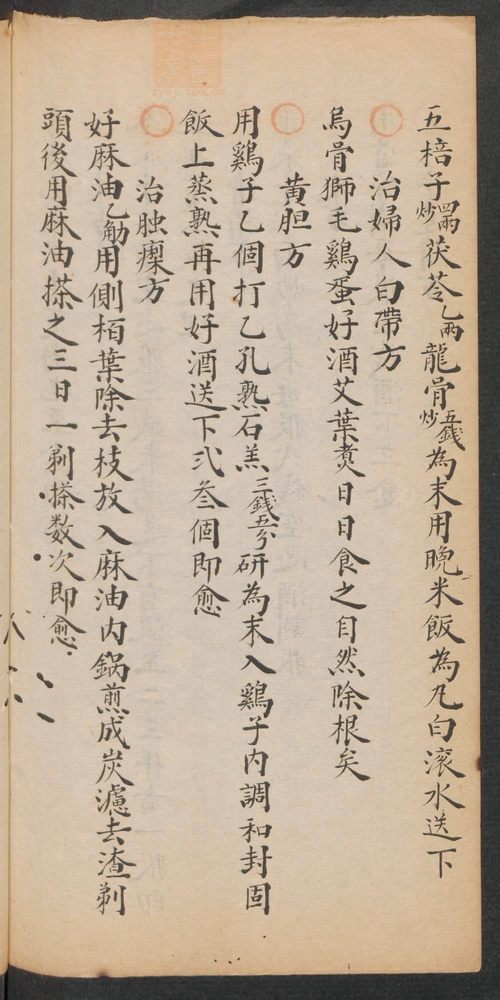 五棓子四両炒茯苓乙両龍骨五錢炒為末用晩米飯為丸白滾水送下
治婦人白帶方
烏骨獅毛鷄蛋好酒艾葉煑日日食之自然除根矣
黄胆方
用鷄子乙個打乙孔熟石羔三錢五分研為末入鷄子内調和封固
飯上蒸熟再用好酒送下弍叁個即愈
治䖝瘰方
好麻油乙觔用側栢葉除去枝放入麻油内鍋煎成炭濾去渣剃
頭後用麻油搽之三日一剃搽数次即愈